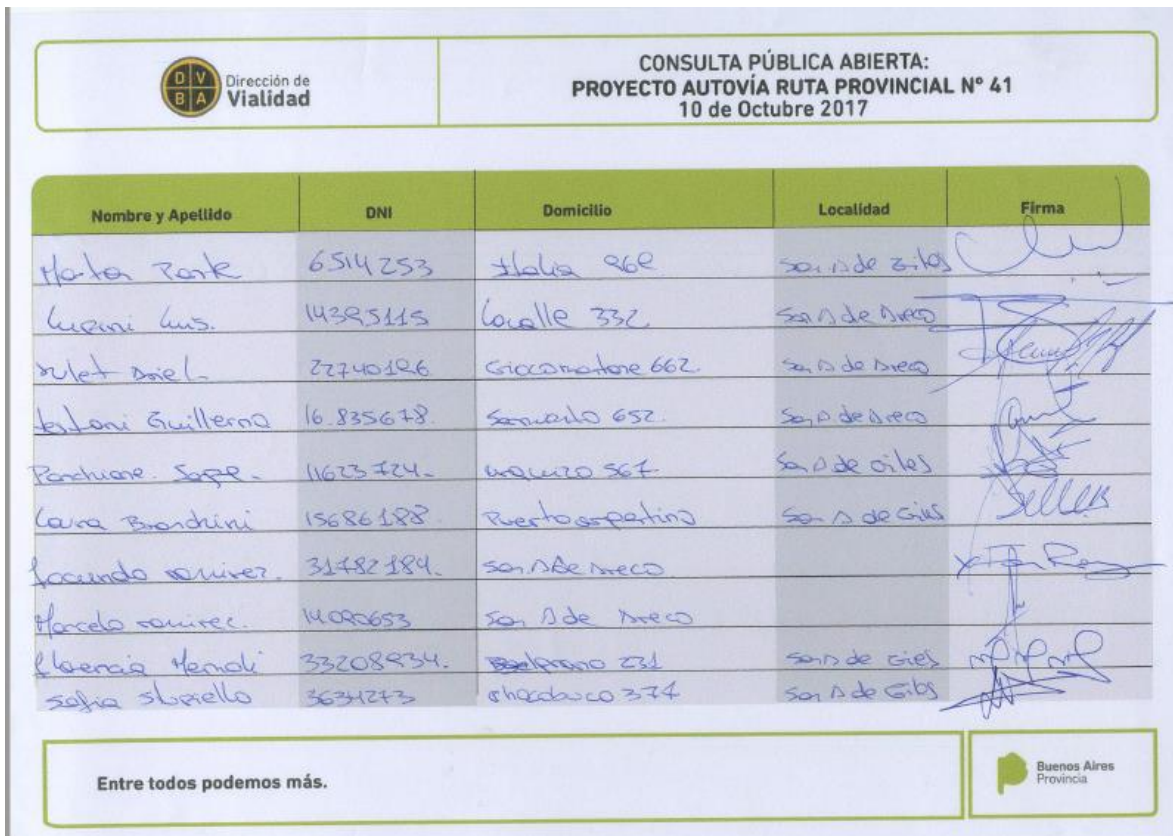 D V B A Dirección de Vialidad
CONSULTA PÚBLICA ABIERTA:
PROYECTO AUTOVÍA RUTA PROVINCIAL Nº 41
10 de Octubre 2017
Nombre y Apellido DNI Domicilio Localidad Firma
6514253 Italia
Luis. 14395115 Lavalle 332 San A de Areco
Ariel 662. San A de Areco
Guillermo 16.835678. Sarmiento 652. San A de Areco
11623724. 567 San A de Giles
Bianchini 15686188 Puerto argentino San A de Giles
facundo ramirez. 31782184. San A de Areco
Marcelo ramirez. 14090653 San A de Areco
florencia 33208934. Belgrano 231 San A de Giles
sofia 3634273 chacabuco 374 San A de Giles
Entre todos podemos más.
Buenos Aires
Provincia